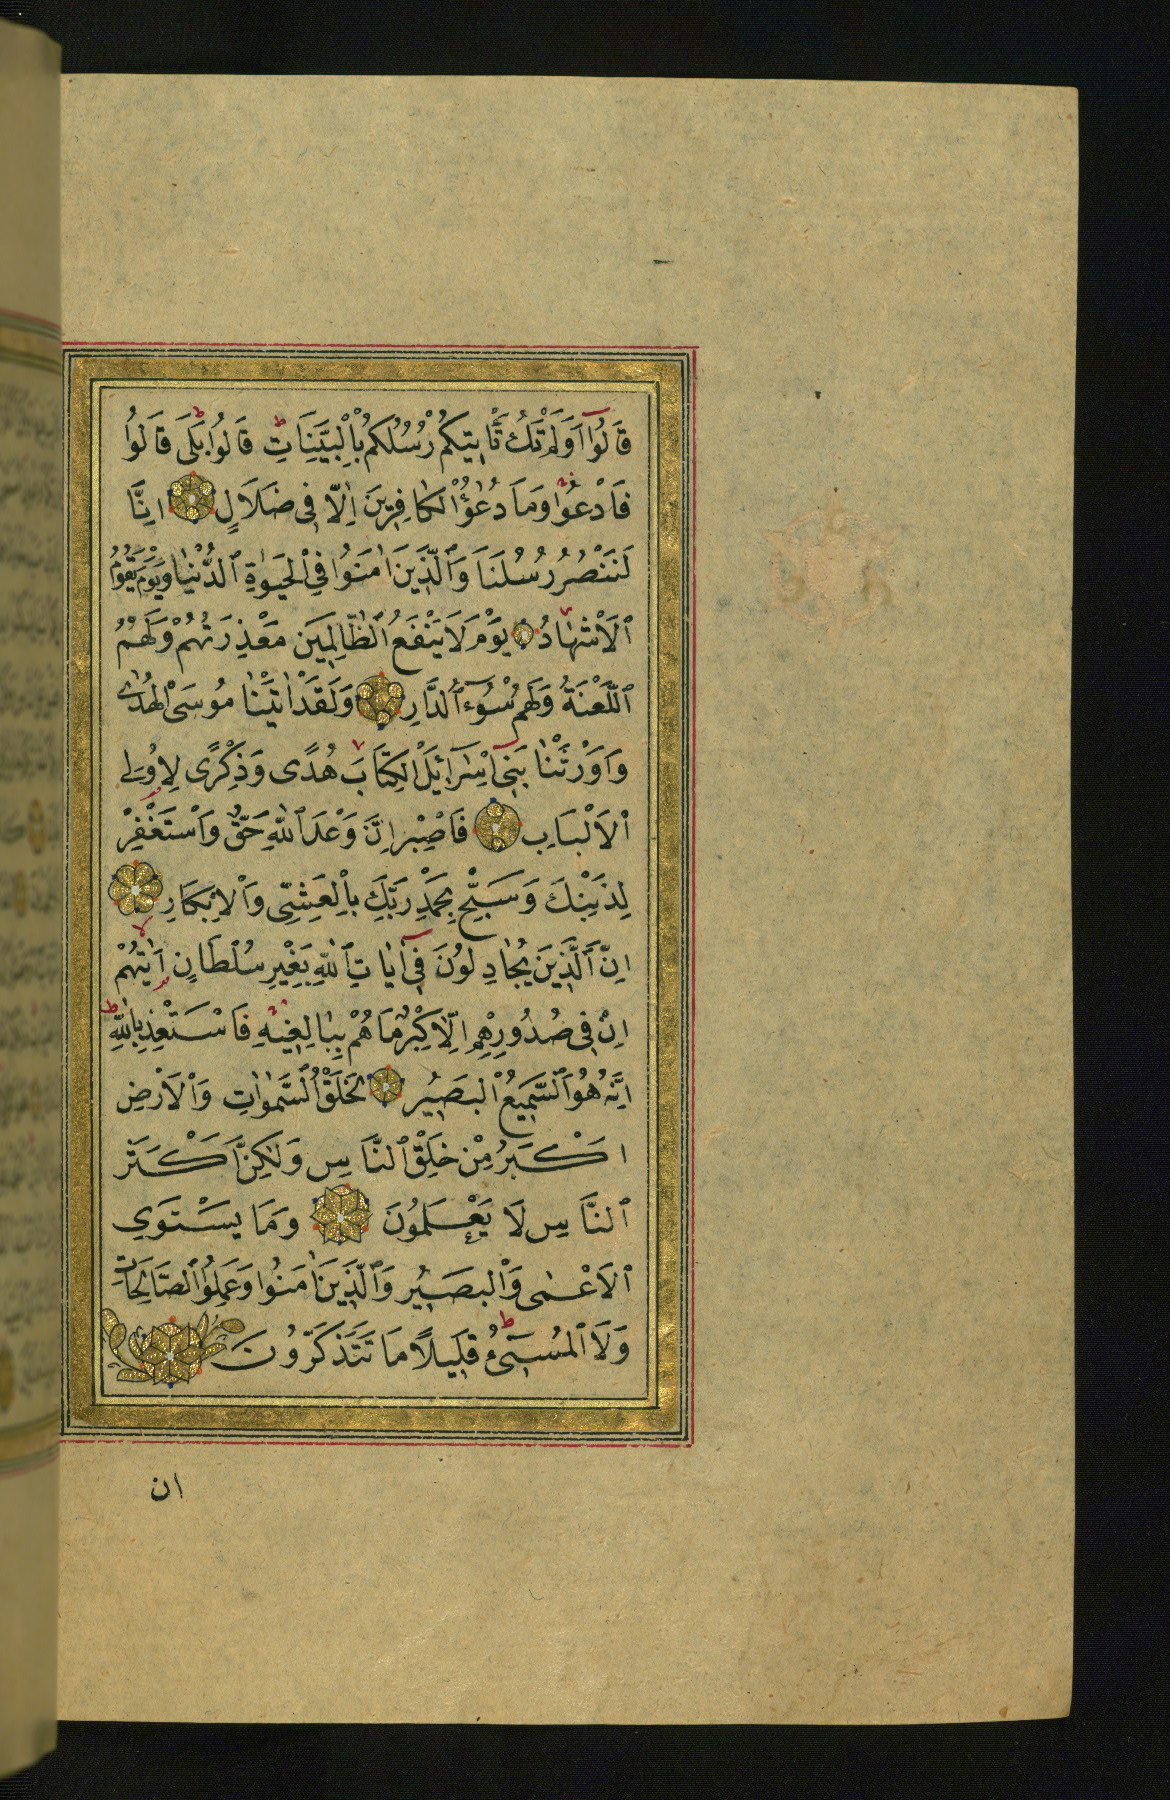 قَالُوٓا اَوَلَمْ تَكُ تَأْتِيكُمْ رُسُلُكُمْ بِالْبَيِّنَاتِ قَالُوا بَلٰى قَالُوا
فَادْعُوا وَمَا دُعٰٓؤُا الْكَافِرِينَ اِلَّا فِى ضَلَالٍ اِنَّا
لَنَنْصُرُ رُسُلَنَا وَالَّذِينَ اٰمَنُوا فِى الْحَيٰوةِ الدُّنْيَا وَيَوْمَ يَقُومُ
الْاَشْهَادُ يَوْمَ لَا يَنْفَعُ الظَّالِمِينَ مَعْذِرَتُهُمْ وَلَهُمُ
اللَّعْنَةُ وَلَهُمْ سُوٓءُ الدَّارِ وَلَقَدْ اٰتَيْنَا مُوسَى الْهُدٰى
وَاَوْرَثْنَا بَنِىٓ اِسْرَآئِلَ الْكِتَابَ هُدًى وَذِكْرٰى لِاُولِى
الْاَلْبَابِ فَاصْبِرْ اِنَّ وَعْدَ اللّٰهِ حَقٌّ وَاسْتَغْفِرْ
لِذَنْبِكَ وَسَبِّحْ بِحَمْدِ رَبِّكَ بِالْعَشِىِّ وَالْاِبْكَارِ
اِنَّ الَّذِينَ يُجَادِلُونَ فِىٓ اٰيَاتِ اللّٰهِ بِغَيْرِ سُلْطَانٍ اَتٰيهُمْ
اِنْ فِى صُدُورِهِمْ اِلَّا كِبْرٌ مَا هُمْ بِبَالِغِيهِ فَاسْتَعِذْ بِاللّٰهِ
اِنَّهُ هُوَ السَّمِيعُ الْبَصِيرُ لَخَلْقُ السَّمٰوَاتِ وَالْاَرْضِ
اَكْبَرُ مِنْ خَلْقِ النَّاسِ وَلٰكِنَّ اَكْثَرَ
النَّاسِ لَا يَعْلَمُونَ وَمَا يَسْتَوِى
الْاَعْمٰى وَالْبَصِيرُ وَالَّذِينَ اٰمَنُوا وَعَمِلُوا الصَّالِحَاتِ
وَلَا الْمُسِىٓءُ قَلِيلًا مَا تَتَذَكَّرُونَ
ان